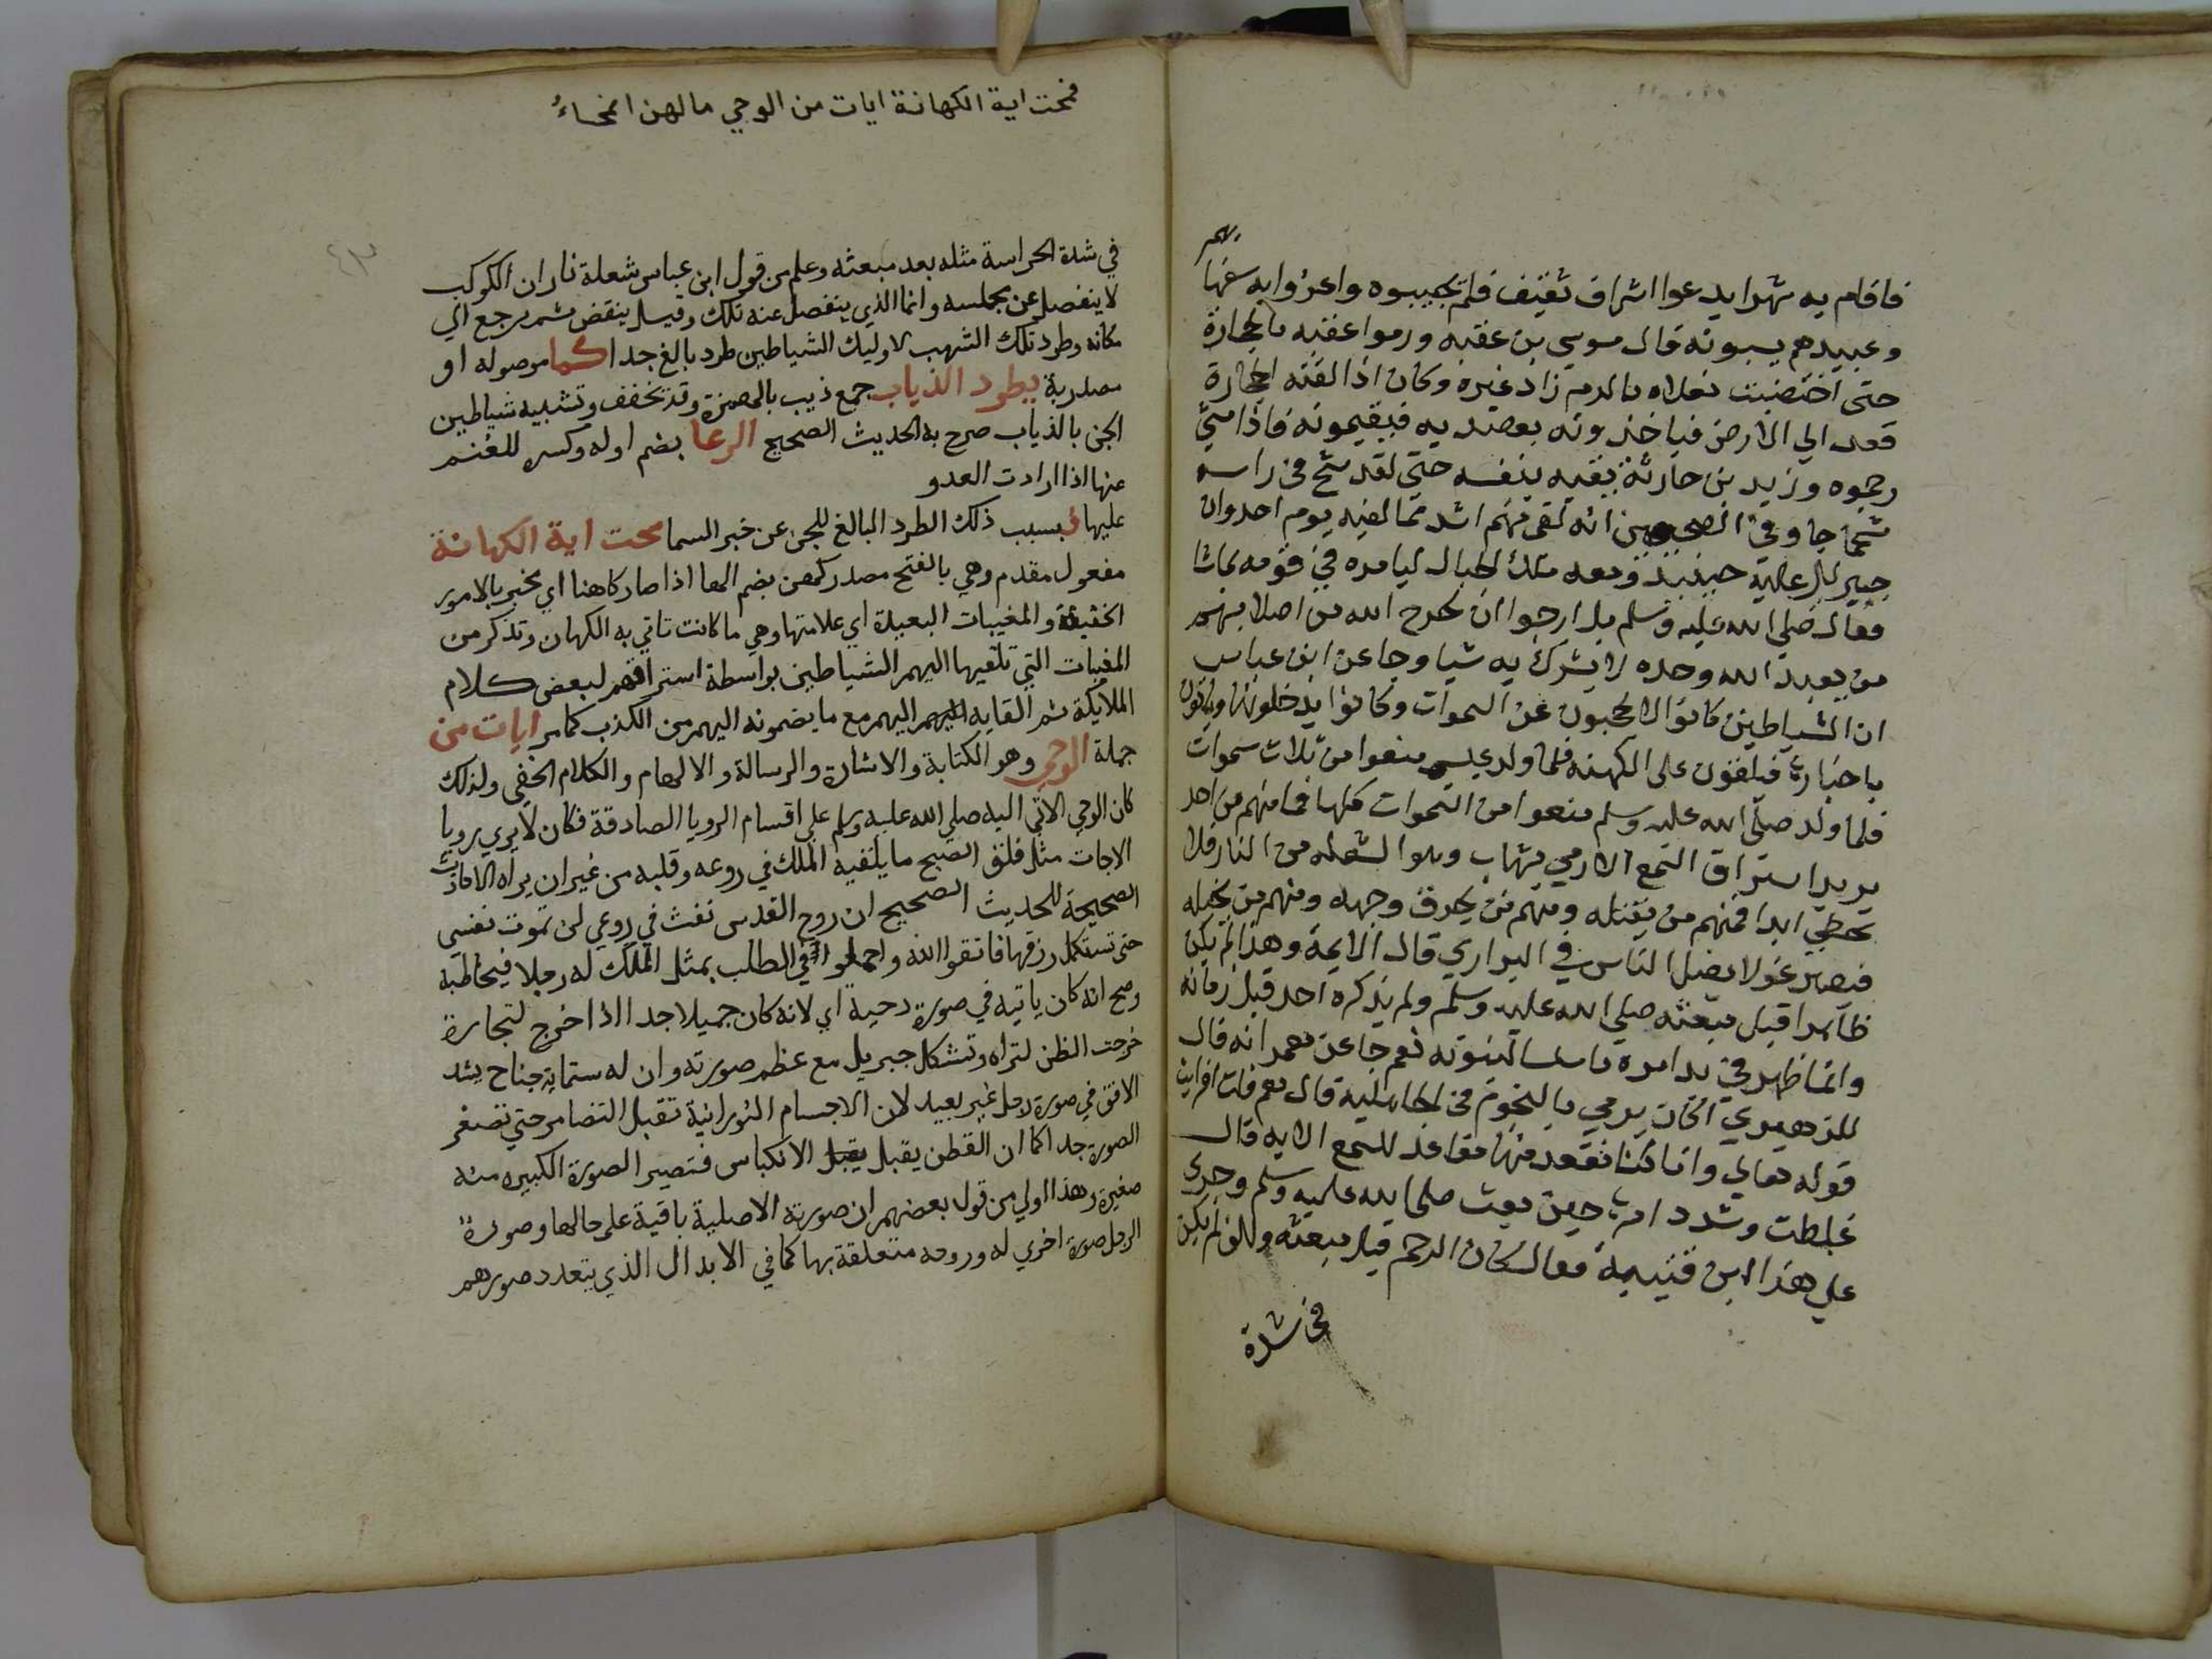 فاقام به شهرا يدعوا اشراف ثقيف فلم يجيبوه واغروا به سفها
ئهم
وعبيدهم يسبونه قال موسي بن عقبه ورموا عقبه بالحجارة
حتى اختضبت نعلاه بالدم زاد غيره وكان اذا القته الحجارة
قعد الي الارض فياخذونه بعضديه فيقيمونه فاذا مشي
رجموه وزيد بن حارثة يقيه بنفسه حتى لقد شج في راسه
شجاجا وفي الصحيحين انه لقى منهم اشد مما لقيه يوم احد وان
جبريل عليه حينيذ ومعه ملك الجبال ليامره في قومه بماشا
فقال صلي الله عليه وسلم بل ارجوا ان يخرج الله من اصلابهم
من يعبد الله وحده لا يشرك به شيا وجا عن ابن عباس
ان الشياطين كانوا لا يحجبون عن السموات وكانوا يدخلونها وياتون
باخبارها فيلقون على الكهنه فلما ولد عيسي منعوا من ثلاث سموات
فلما ولد صلي الله عليه وسلم منعوا من السموات كلها فما منهم من احد
يريد استراق السمع الا رمي بشهاب وهو الشعله من النار فلا
تخطي ابدا فمنهم من يقتله ومنهم من يحرق وجهه ومنهم من يخبله
فيصير غولا يضل الناس في البراري قال الايمة وهذا لم يكن
ظاهرا قبل مبعثه صلي الله عليه وسلم ولم يذكره احد قبل زمانه
وانما ظهر في بدا امره تاسيسا لنبوته نعم جا عن معمر انه قال
للزهري اكان يرمي بالنجوم في الجاهلية قال نعم قلت افرايت
قوله تعالي وانا كنا نقعد منها مقاعد للسمع الايه قال
غلظت وشدد امرها حين بعث صلي الله عليه وسلم وجري
علي هذا ابن قتيبة فقال كان الرجم قبل مبعثه ولكن لم يكن
في شدة
فمحت اية الكهانة ايات من الوحي مالهن انمحاءُ
٤٣
في شدة الحراسة مثله بعد مبعثه وعلم من قول ابن عباس شعلة نار ان الكوكب
لا ينفصل عن مجلسه وانما الذي ينفصل عنه تلك وقيل ينقض ثم يرجع الي
مكانه وطرد تلك الشهب لاوليك الشياطين طرد بالغ جدا كما موصوله او
مصدرية يطرد الذياب جمع ذيب بالهمزة وقد تخفف وتشبيه شياطين
الجن بالذياب صرح به الحديث الصحيح الرعا بضم اوله وكسره للغنم
عنها اذا ارادت العدو
عليها ف بسبب ذلك الطرد البالغ للجن عن خبر السما محت اية الكهانة
مفعول مقدم وهي بالفتح مصدر كهن بضم الها اذا صار كاهنا اي يخبر بالامور
الخفية والمغيبات البعيدة اي علامتها وهي ما كانت تاتي به الكهان وتذكر من
المغيبات التي تلقيها اليهم الشياطين بواسطة استراقهم لبعض كلام
الملايكة ثم القايه اليهم اليهم مع ما يضمونه اليهم من الكذب كما مر ايات من
جملة الوحي وهو الكتابة والاشارة والرسالة والالهام والكلام الخفي ولذلك
كان الوحي الاتي اليه صلي الله عليه وسلم علي اقسام الرويا الصادقة فكان لا يري رويا
الا جات مثل فلق الصبح ما يلقيه الملك في روعه وقلبه من غير ان يراه الاحاديث
الصحيحة للحديث الصحيح ان روح القدس نفث في روعي لن تموت نفسي
حتى تستكمل رزقها فاتقوا الله واجملوا في الطلب يمثل الملك له رجلا فيخاطبه
وصح انه كان ياتيه في صورة دحية اي لانه كان جميلا جدا اذا خرج لتجارة
خرجت الظن لتراه وتشكل جبريل مع عظم صورته وان له ستماية جناح يشد
الافق في صورة رجل غير بعيد لان الاجسام النورانية تقبل التضامر حتي تصغر
الصورة جدا كما ان القطن يقبل يقبل الانكباس فتصير الصورة الكبيره منه
صغيرة وهذا اولي من قول بعضهم ان صورته الاصلية باقية على حالها وصورة
الرجل صورة اخري له وروحه متعلقة بها كما في الابدال الذي يتعدد صورهم